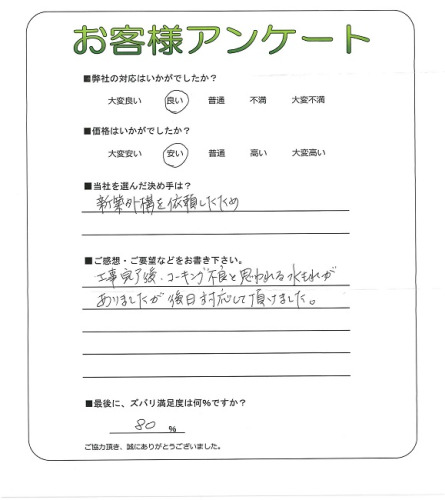 お客様アンケート
■弊社の対応はいかがでしたか？
大変良い 良い 普通 不満 大変不満
■価格はいかがでしたか？
大変安い 安い 普通 高い 大変高い
■当社を選んだ決め手は？
新築外構を依頼したため
■ご感想・ご要望などをお書き下さい。
工事完了後、コーキング不良と思われる水もれが
ありましたが後日対応して頂けました。
■最後に、ズバリ満足度は何%ですか？
80 %
ご協力頂き、誠にありがとうございました。